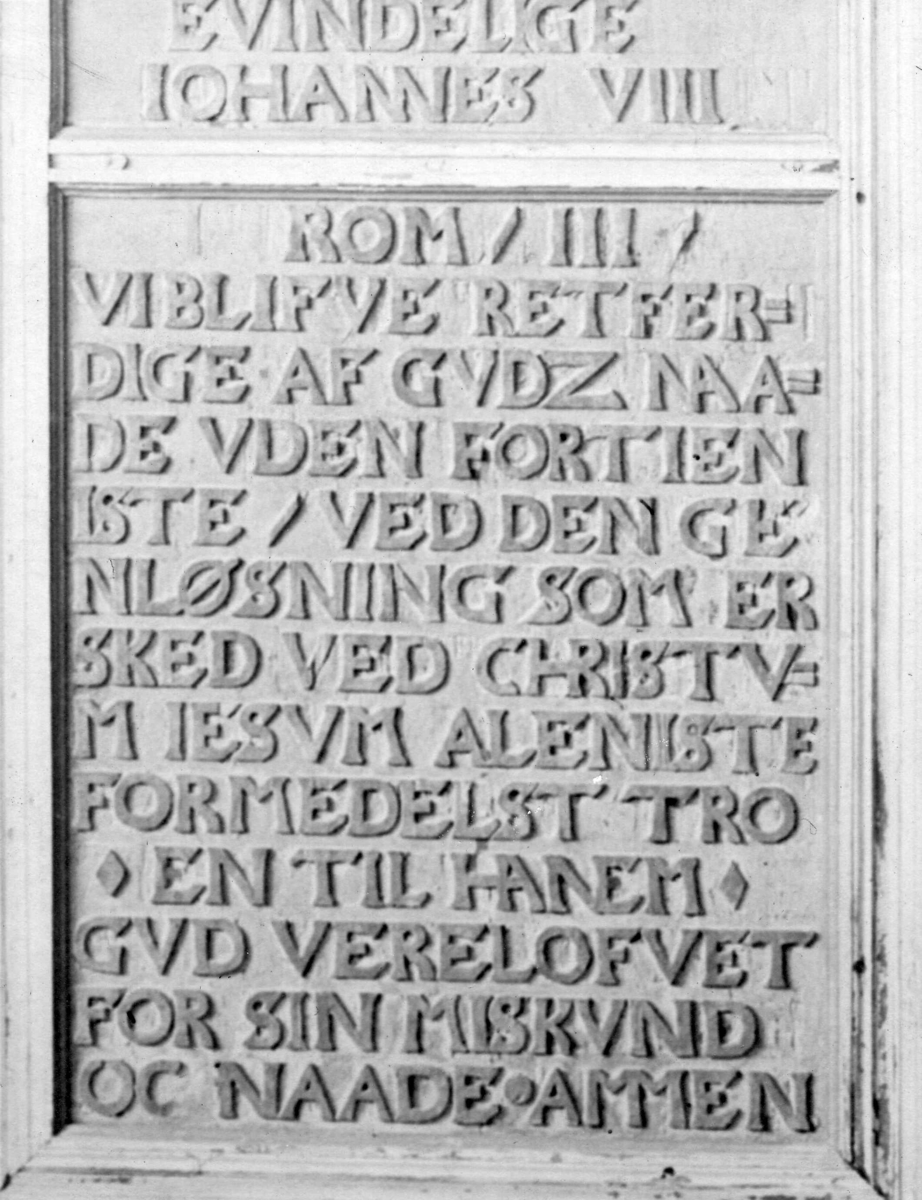 EVINDELIGE
IOHANNES VIII
ROM / III /
VI BLIFVE RETFER=
DIGE AF GVDZ NAA=
DE VDEN FORTIEN
ISTE / VED DEN GE
NLØSNING SOM ER
SKED VED CHRISTV=
M IESVM ALENISTE
FORMEDELST TRO
◊ EN TIL HANEM ◊
GVD VERE LOFVET
FOR SIN MISKVND
OC NAADE • AMMEN